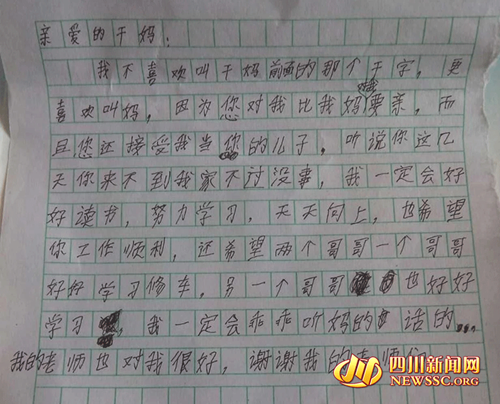 亲爱的干妈：
我不喜欢叫干妈前面的那个干字，更
喜欢叫妈，因为您对我比我妈对我要亲，而
且您还接受我当您的儿子，听说你这几
天你来不到我家不过没事，我一定会好
好读书，努力学习，天天向上，也希望
你工作顺利，还希望两个哥哥一个哥哥
好好学习修车，另一个哥哥也好好
学习，我一定会乖乖听妈的话的
我的老师也对我很好，谢谢我的老师
四川新闻网
NEWSSC.ORG